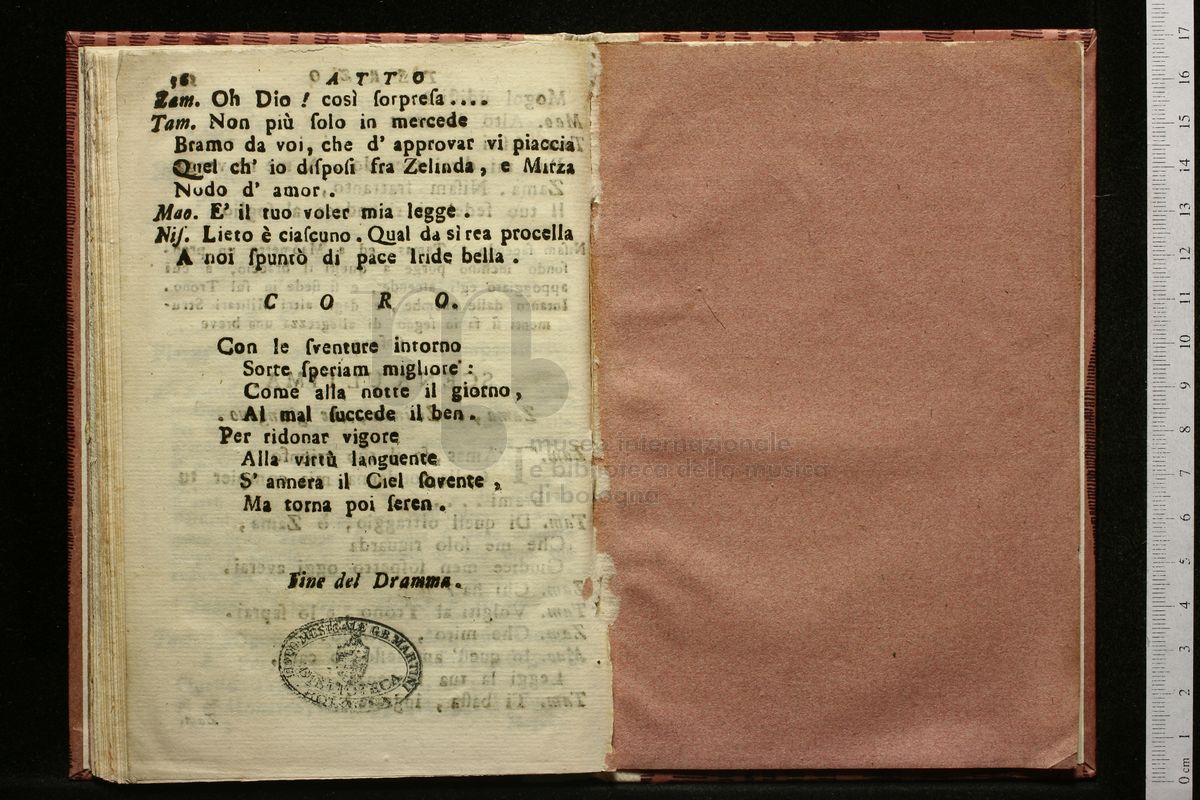 56 ATTO
Zam. Oh Dio ! così ſorpreſa....
Tam. Non più ſolo in mercede
Bramo da voi, che d' approvar vi piaccia
Quel ch' io diſpoſi fra Zelinda, e Mirza
Nodo d' amor..
Mao. E' il tuo voler mia legge.
Niſ. Lieto è ciaſcuno. Qual da sì rea procella
A noi ſpuntò di pace Iride bella.
CORO.
Con le ſventure intorno
Sorte ſperiam migliore:
Come alla notte il giorno,
Al mal ſuccede il ben.
Per ridonar vigore
Alla virtù languente
S' annera il Ciel ſovente,
Ma torna poi ſeren.
Fine del Dramma.
LICEO MUSICALE G.B. MARTINI
BIBLIOTECA
BOLOGNA
museo internazionale
e biblioteca della musica
di bologna
0 cm 1 2 3 4 5 6 7 8 9 10 11 12 13 14 15 16 17